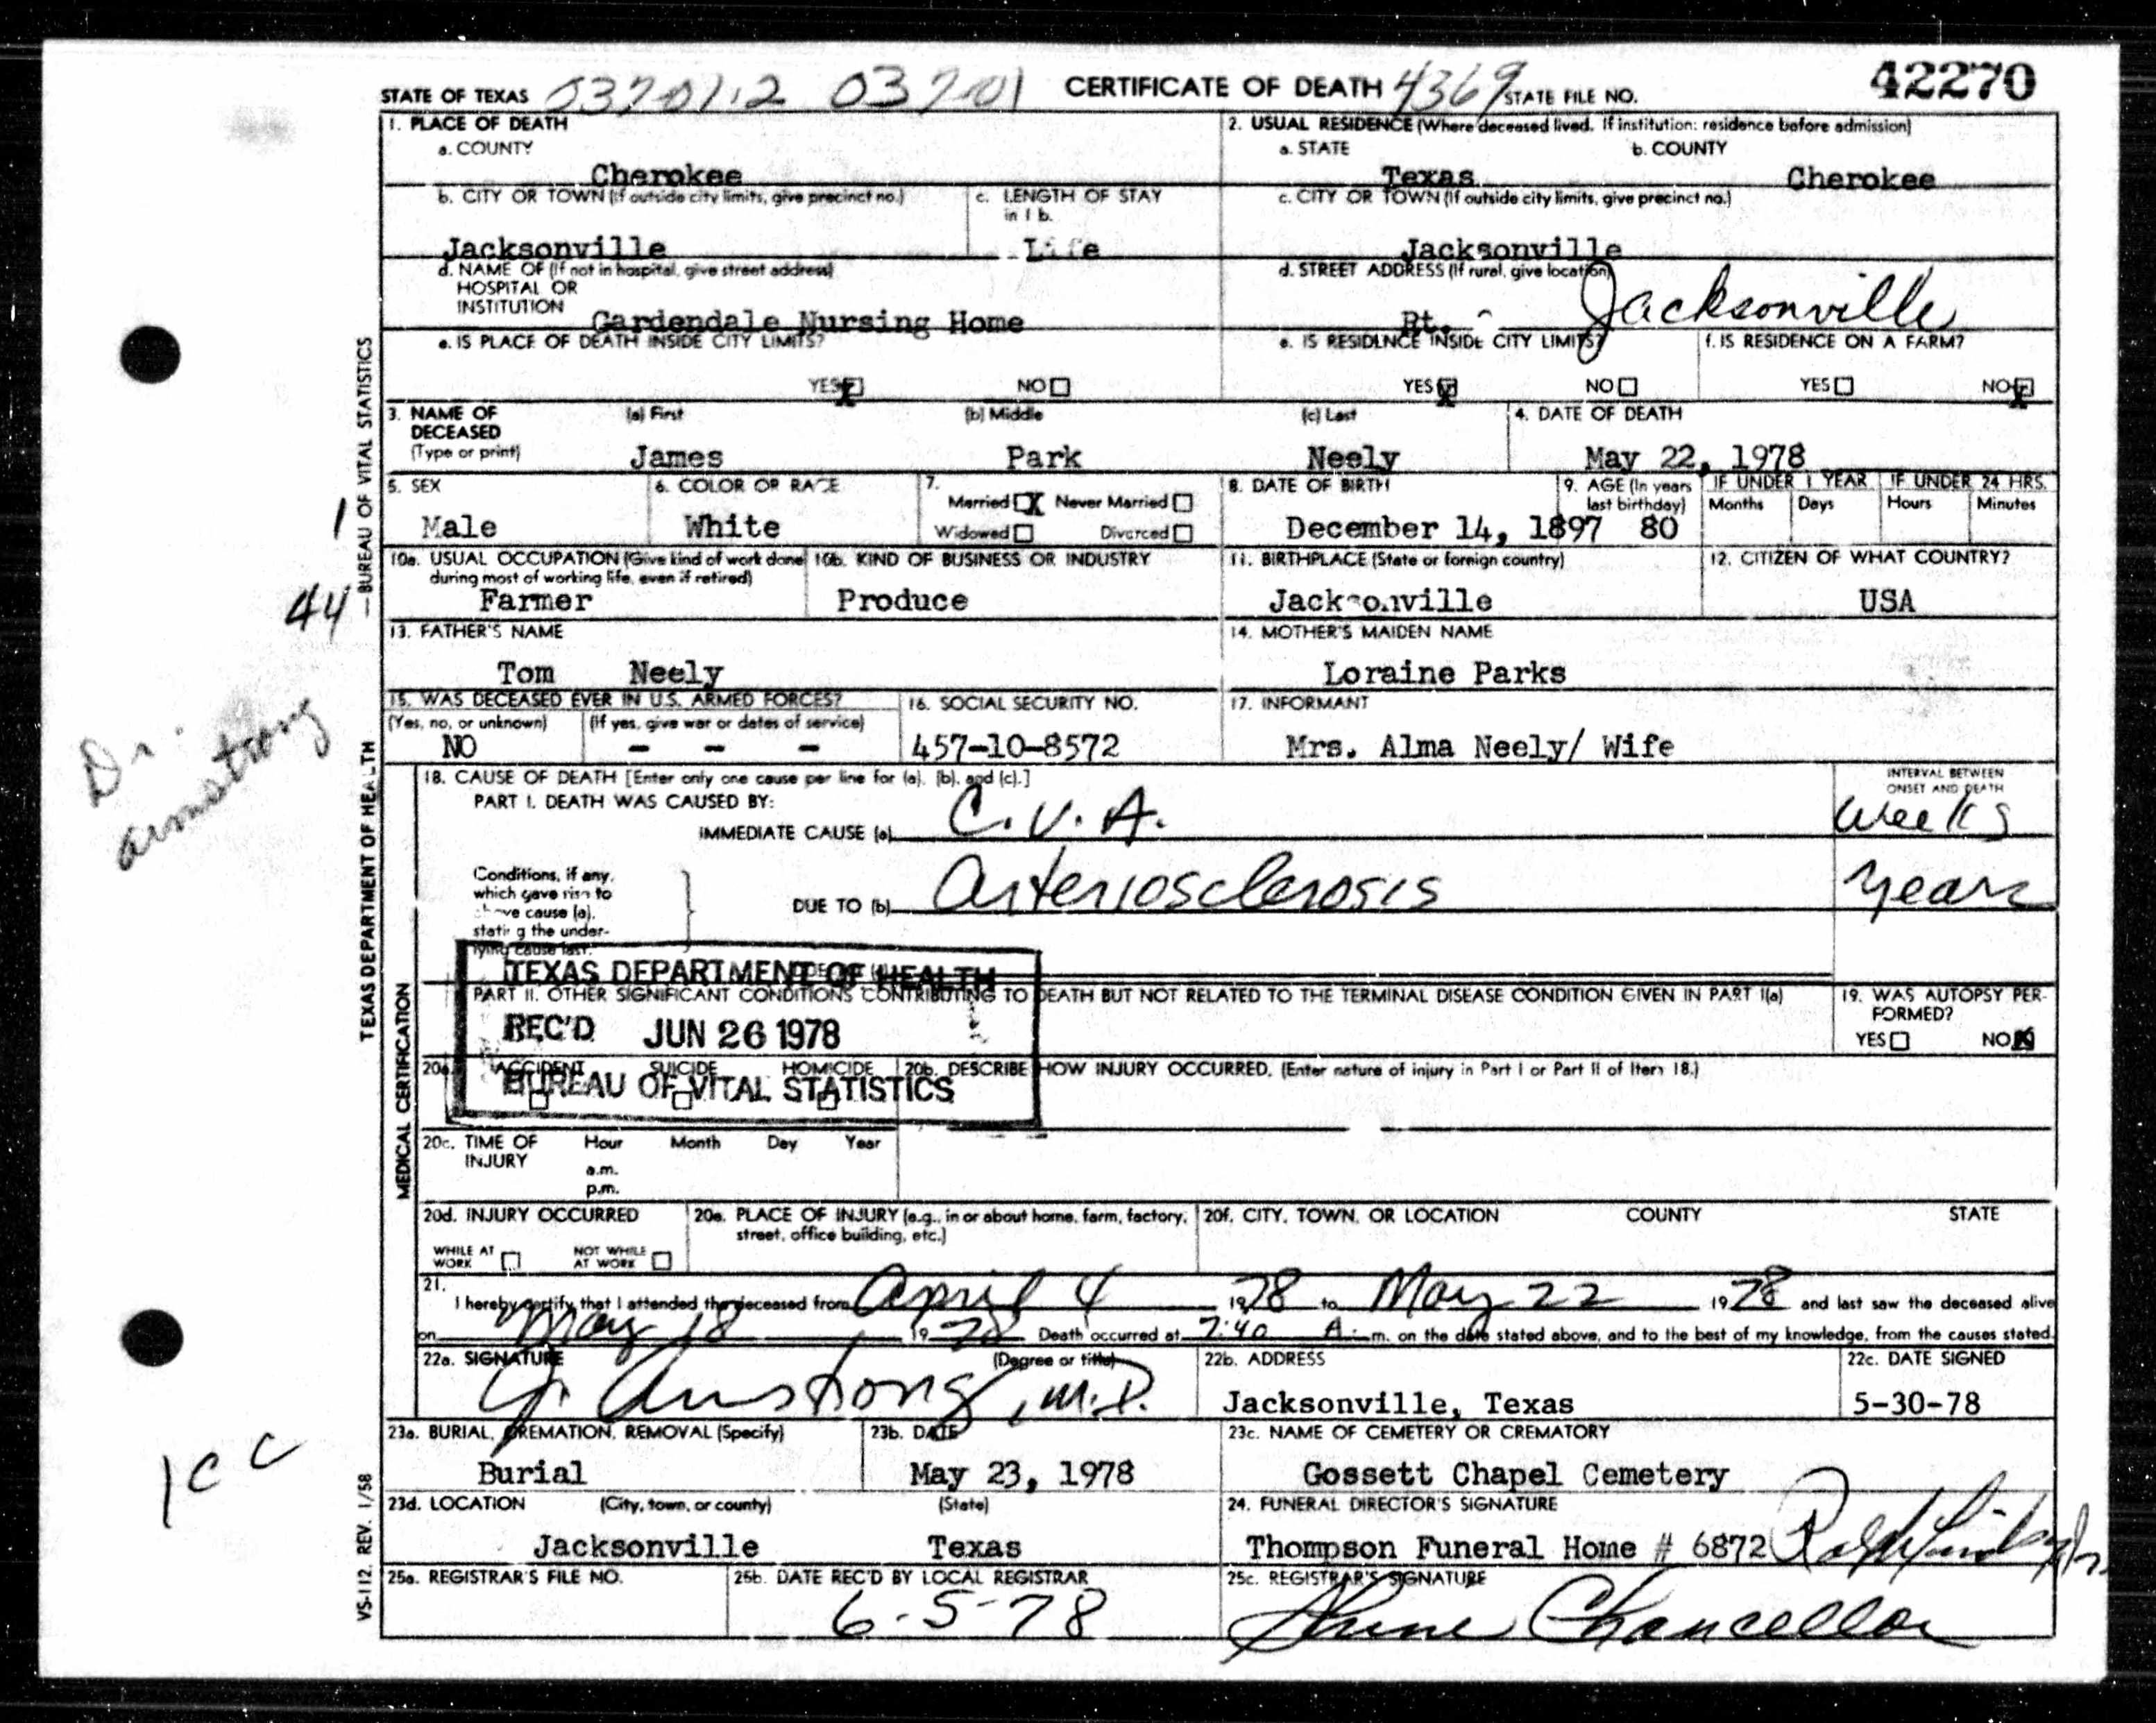 STATE OF TEXAS 037-01 CERTIFICATE OF DEATH 4369 STATE FILE NO. 42270
1. PLACE OF DEATH
a. COUNTY
Cherokee
2. USUAL RESIDENCE (Where deceased lived. If institution: residence before admission)
a. STATE b. COUNTY
Texas Cherokee
b. CITY OR TOWN (If outside city limits, give precinct no.) c. LENGTH OF STAY in 1 b.
Jacksonville Life
c. CITY OR TOWN (If outside city limits, give precinct no.)
Jacksonville
d. NAME OF (If not in hospital, give street address)
HOSPITAL OR
INSTITUTION
Gardendale Nursing Home
d. STREET ADDRESS (If rural, give location)
Rt. Jacksonville
e. IS PLACE OF DEATH INSIDE CITY LIMITS?
YES X NO
e. IS RESIDENCE INSIDE CITY LIMITS? f. IS RESIDENCE ON A FARM?
YES X NO YES NO X
3. NAME OF DECEASED (Type or print) (a) First (b) Middle (c) Last 4. DATE OF DEATH
James Park Neely May 22, 1978
5. SEX 6. COLOR OR RACE 7. Married X Never Married Widowed Divorced
Male White
8. DATE OF BIRTH 9. AGE (In years last birthday) IF UNDER 1 YEAR IF UNDER 24 HRS.
Months Days Hours Minutes
December 14, 1897 80
10a. USUAL OCCUPATION (Give kind of work done during most of working life, even if retired) 10b. KIND OF BUSINESS OR INDUSTRY
Farmer Produce
11. BIRTHPLACE (State or foreign country) 12. CITIZEN OF WHAT COUNTRY?
Jacksonville USA
13. FATHER'S NAME 14. MOTHER'S MAIDEN NAME
Tom Neely Loraine Parks
15. WAS DECEASED EVER IN U.S. ARMED FORCES? 16. SOCIAL SECURITY NO. 17. INFORMANT
(Yes, no, or unknown) (If yes, give war or dates of service)
NO - - - 457-10-8572 Mrs. Alma Neely/ Wife
18. CAUSE OF DEATH [Enter only one cause per line for (a), (b), and (c).] INTERVAL BETWEEN ONSET AND DEATH
PART I. DEATH WAS CAUSED BY:
IMMEDIATE CAUSE (a) C.V.A. weeks
Conditions, if any, which gave rise to above cause (a), stating the underlying cause last.
DUE TO (b) Arteriosclerosis years
TEXAS DEPARTMENT OF HEALTH
REC'D JUN 26 1978
BUREAU OF VITAL STATISTICS
PART II. OTHER SIGNIFICANT CONDITIONS CONTRIBUTING TO DEATH BUT NOT RELATED TO THE TERMINAL DISEASE CONDITION GIVEN IN PART I(a)
19. WAS AUTOPSY PERFORMED?
YES NO X
20a. ACCIDENT SUICIDE HOMICIDE 20b. DESCRIBE HOW INJURY OCCURRED. (Enter nature of injury in Part I or Part II of Item 18.)
20c. TIME OF INJURY Hour Month Day Year
a.m.
p.m.
20d. INJURY OCCURRED 20e. PLACE OF INJURY (e.g., in or about home, farm, factory, street, office building, etc.) 20f. CITY, TOWN, OR LOCATION COUNTY STATE
WHILE AT WORK NOT WHILE AT WORK
21. I hereby certify that I attended the deceased from April 4 1978 to May 22 1978 and last saw the deceased alive
on May 18 1978 Death occurred at 7:40 A.m. on the date stated above, and to the best of my knowledge, from the causes stated.
22a. SIGNATURE (Degree or title) 22b. ADDRESS 22c. DATE SIGNED
Armstrong, M.D. Jacksonville, Texas 5-30-78
23a. BURIAL, CREMATION, REMOVAL (Specify) 23b. DATE 23c. NAME OF CEMETERY OR CREMATORY
Burial May 23, 1978 Gossett Chapel Cemetery
23d. LOCATION (City, town, or county) (State) 24. FUNERAL DIRECTOR'S SIGNATURE
Jacksonville Texas Thompson Funeral Home # 6872
25a. REGISTRAR'S FILE NO. 25b. DATE REC'D BY LOCAL REGISTRAR 25c. REGISTRAR'S SIGNATURE
6-5-78 Chancellor
TEXAS DEPARTMENT OF HEALTH — BUREAU OF VITAL STATISTICS
MEDICAL CERTIFICATION
VS-112 REV. 1/58
1
44
Dr. Armstrong
1cc